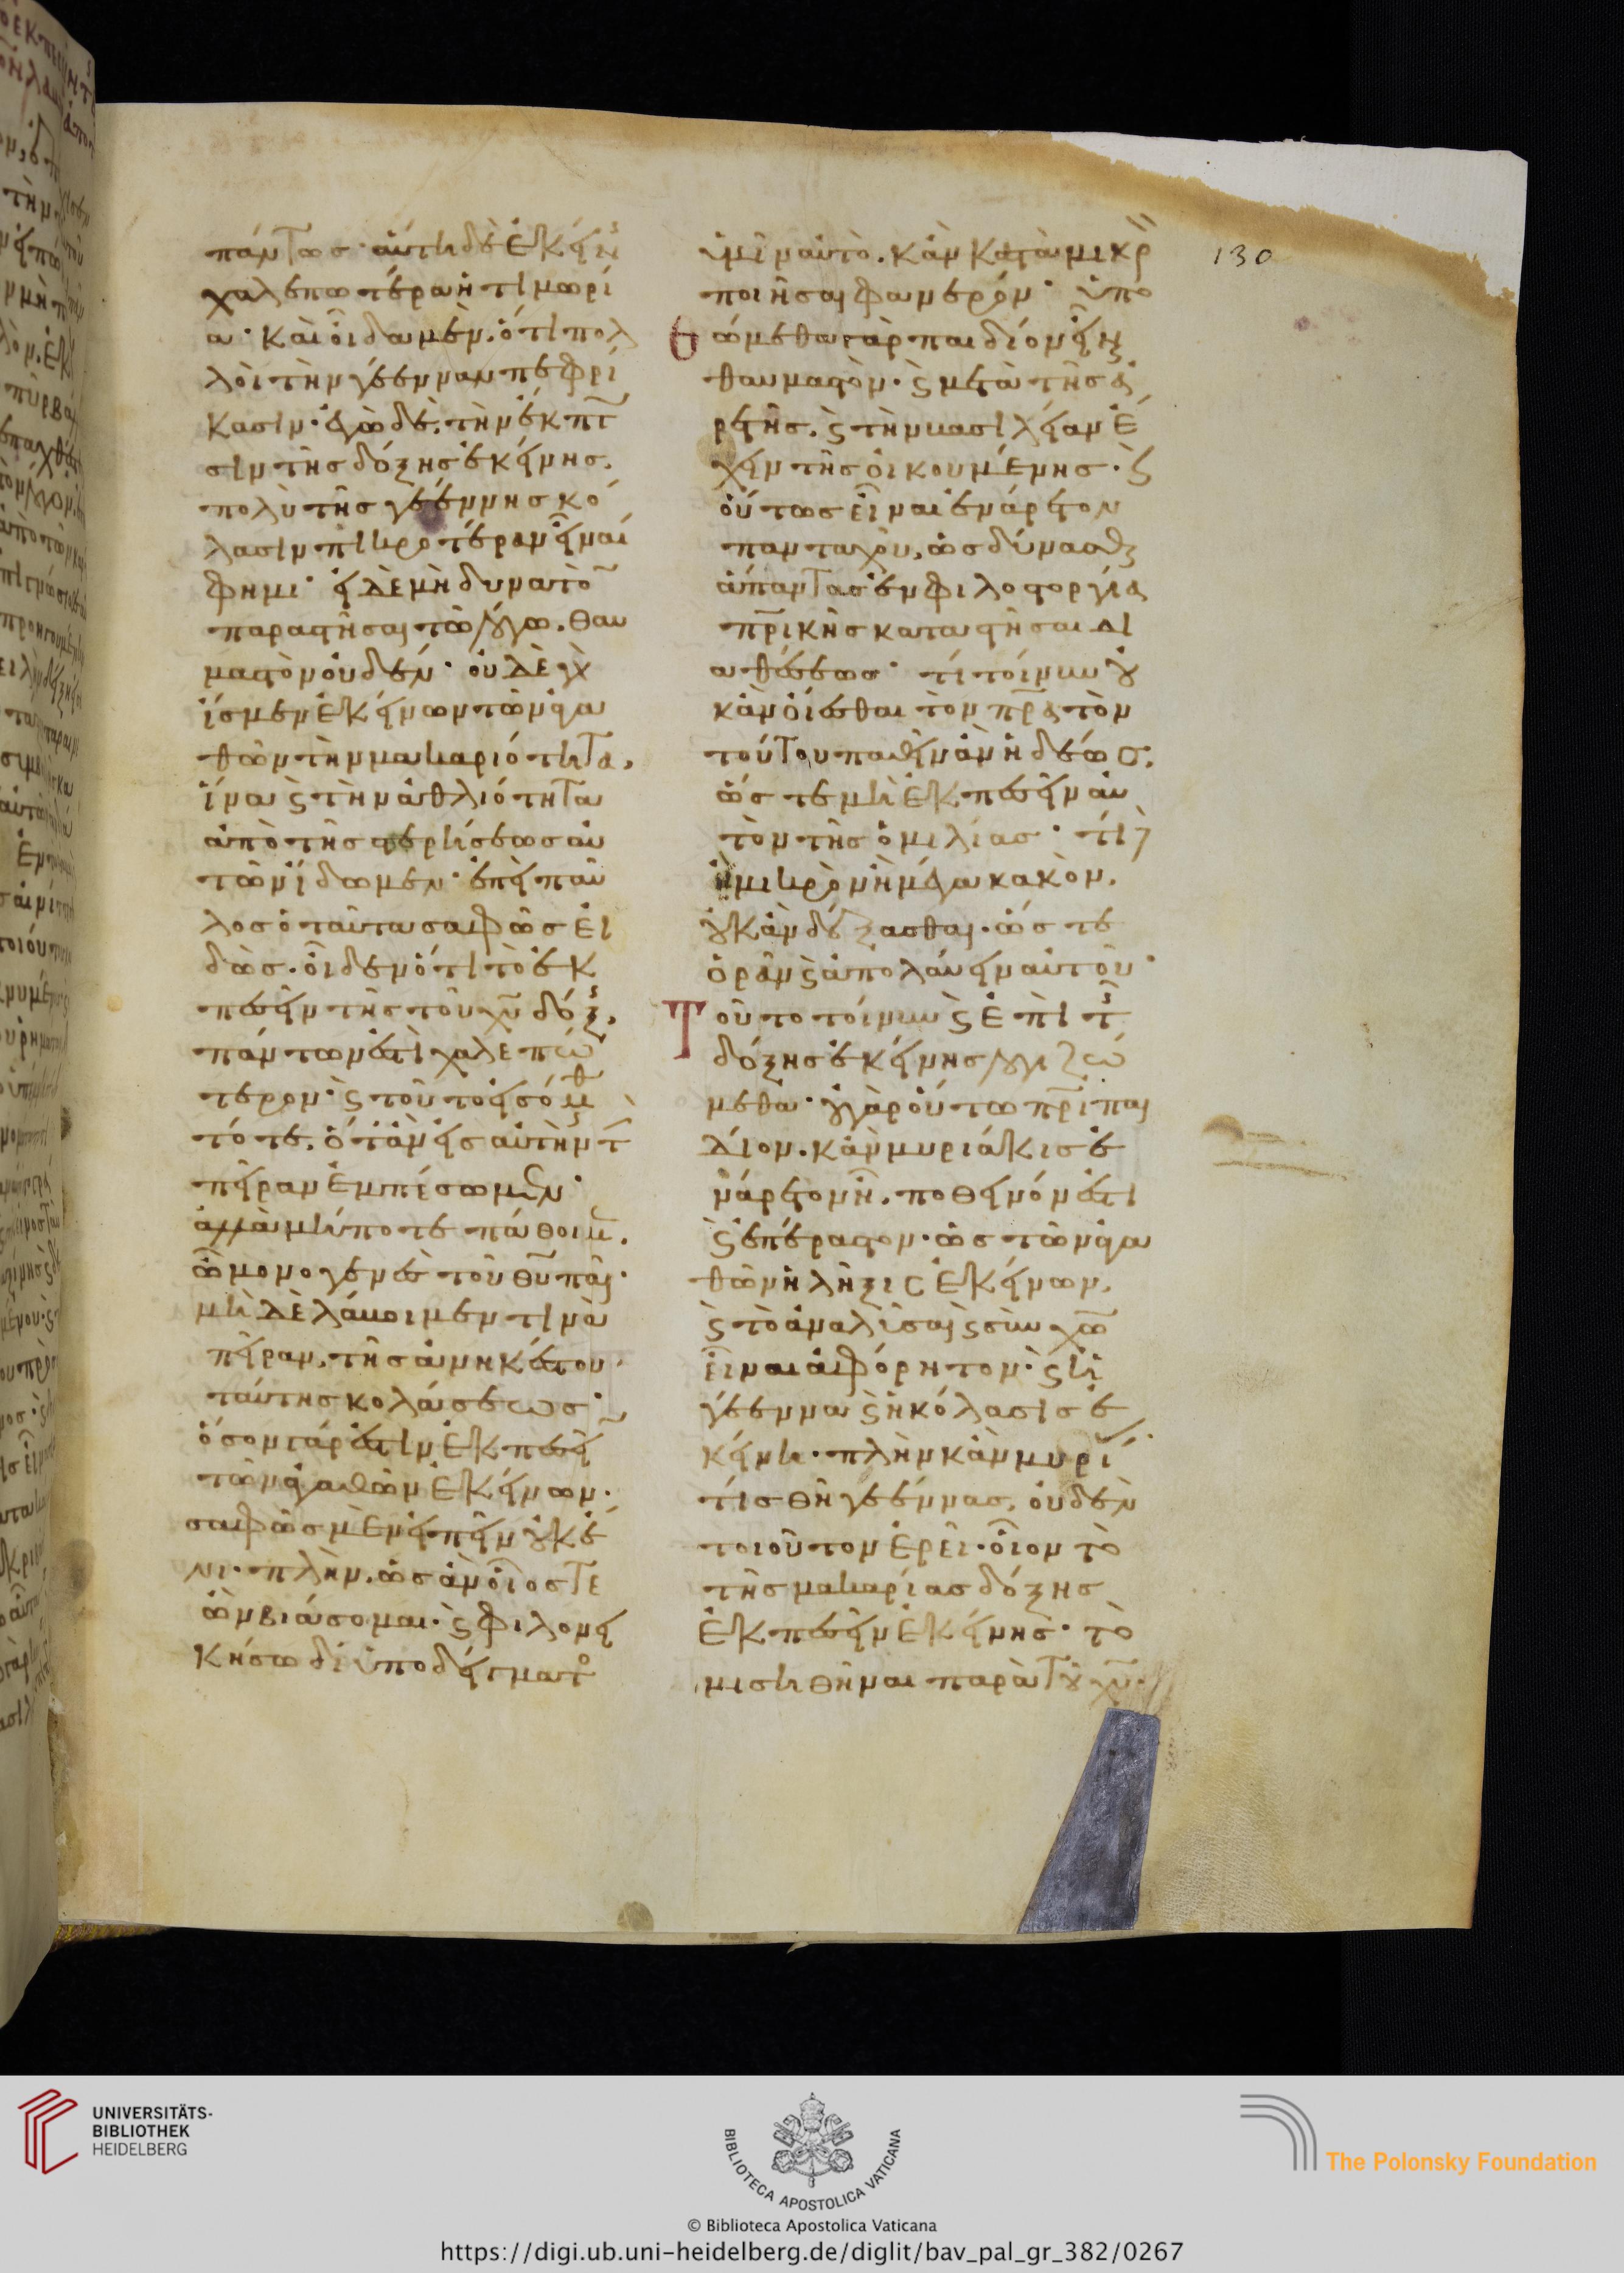 πάντως· αὕτη δὲ ἐκείνης
χαλεπωτέρα ἡ τιμωρί
α· καὶ οἶδα μὲν, ὅτι πολ
λοὶ τὴν γέενναν πεφρί
κασιν· ἐγὼ δὲ, τὴν ἔκπτω
σιν τῆς δόξης ἐκείνης,
πολὺ τῆς γεέννης κό
λασιν πικροτέραν εἶναί
φημι· εἰ δὲ μὴ δυνατὸν
παραστῆσαι τῶ λόγω, θαυ
μαστὸν οὐδέν· οὐδὲ γὰρ
ἴσμεν ἐκείνων τῶν ἀγα
θῶν τὴν μακαριότητα,
ἵνα καὶ τὴν ἀθλιότητα
ἀπὸ τῆς στερήσεως αὐ
τῶν ἴδωμεν· ἐπεὶ παῦ
λος ὁ ταῦτα σαφῶς εἰ
δὼς. οἶδεν ὅτι τὸ ἐκ
πεσεῖν τῆς τοῦ χῦ δόξης,
πάντων ἐστὶ χαλεπώ
τερον· καὶ τοῦτο εἰσόμεθα
τότε, ὅταν εἰς αὐτὴν τὴν
πεῖραν ἐμπέσωμεν·
ἀλλὰ μήποτε πάθοιμεν,
ὦ μονογενὲς τοῦ θῦ παῖ·
μὴ δὲ λάβοιμεν τινὰ
πεῖραν, τῆς ἀνηκέστου
ταύτης κολάσεως·
ὅσον γάρ ἐστιν ἐκπεσεῖν
τῶν ἀγαθῶν ἐκείνων,
σαφῶς μὲν εἰπεῖν οὐκ ἔ
νι· πλὴν, ὡς ἂν οἷός τε
ὦν βιάσομαι· καὶ φιλονει
κήσω δι ὑποδείγματος
ὑμῖν αὐτὸ, κἂν κατὰ μικρὸν
ποιῆσαι φανερόν· ὑπο
θώμεθα γὰρ παιδίον εἶναι
θαυμαστὸν· καὶ μετὰ τῆς ἀ
ρετῆς, καὶ τὴν βασιλείαν ἔ
χειν τῆς οἰκουμένης· καὶ
οὕτως εἶναι ἐνάρετον
πανταχοῦ, ὡς δύνασθαι
ἅπαντας ἐν φιλοστοργίας
πρικῆς καταστῆσαι δι
αθέσεως· τί τοίνυν οὐ
κἂν οἴεσθαι τὸν πρα τὸν
τούτου παθεῖν ἂν ἡδέως,
ὥστε μὴ ἐκπεσεῖν αὐ
τὸν τῆς ὁμιλίας· τί δὲ
ἢ μικρὸν ἢ μέγα κακὸν,
οὐκ ἂν δέξασθαι· ὥστε
ὁρᾶν καὶ ἀπολαύειν αὐτοῦ·
Τοῦτο τοίνυν καὶ ἐπὶ τῆς
δόξης ἐκείνης λογιζώ
μεθα· οὐ γὰρ οὕτω πρὶ παι
δίον, κἂν μυριάκις ἐ
νάρετον ἦ, ποθεινόν ἐστι
καὶ ἐπέραστον· ὡς τῶν ἀγα
θῶν ἡ λῆξις ἐκείνων,
καὶ τὸ ἀναλῦσαι καὶ σὺν χῶ
εἶναι ἀφόρητον· καὶ ἡ
γέεννα καὶ ἡ κόλασις ἐ
κείνη· πλὴν κἂν μυρί
τις θῆ γεέννας, οὐδὲν
τοιοῦτον ἐρεῖ· οἷον τὸ
τῆς μακαρίας δόξης
ἐκπεσεῖν ἐκείνης· τὸ
μισηθῆναι παρὰ τοῦ χῦ.
130
UNIVERSITÄTS-
BIBLIOTHEK
HEIDELBERG
BIBLIOTECA APOSTOLICA VATICANA
© Biblioteca Apostolica Vaticana
The Polonsky Foundation
https://digi.ub.uni-heidelberg.de/diglit/bav_pal_gr_382/0267